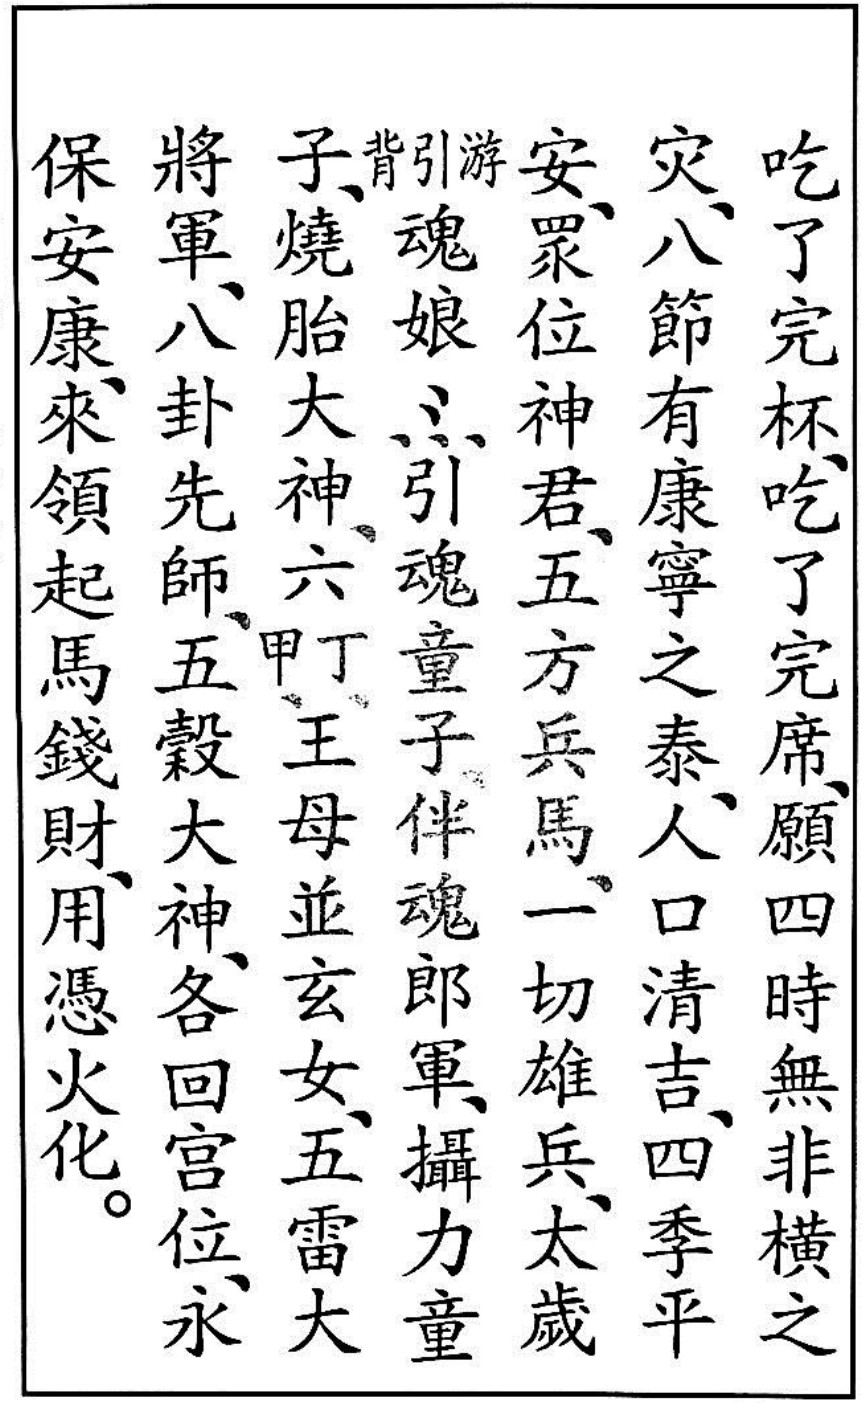 吃了完杯、吃了完席、願四時無非橫之
灾、八節有康寧之泰、人口清吉、四季平
安、眾位神君、五方兵馬、一切雄兵、太歲
游引背魂娘〻、引魂童子、伴魂郎軍、攝力童
子、燒胎大神、六丁甲、王母並玄女、五雷大
將軍、八卦先師、五穀大神、各回宮位、永
保安康、來領起馬錢財、用憑火化。